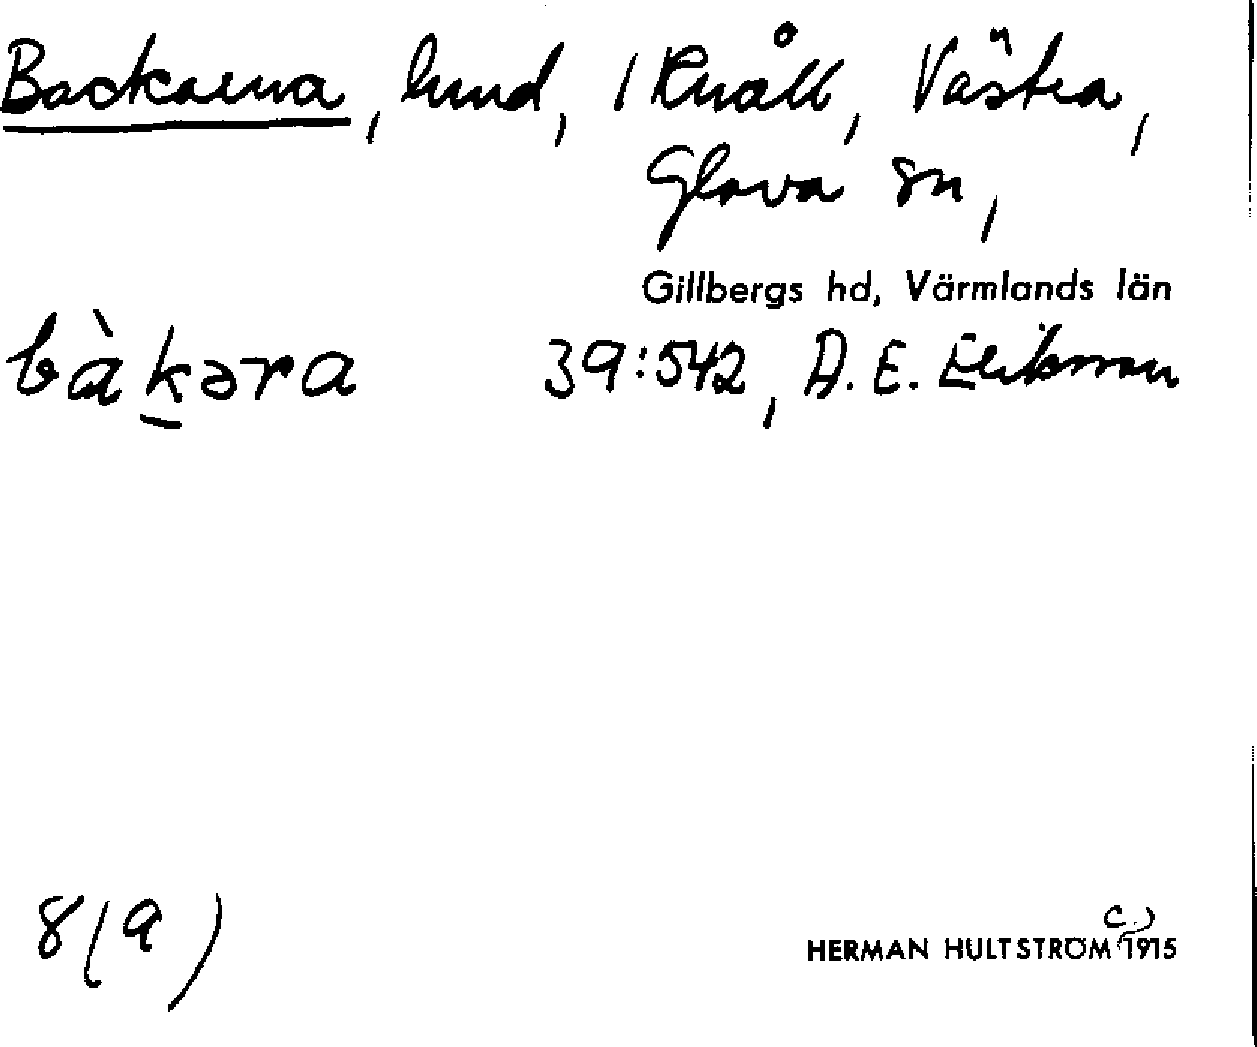 Backarna, lund, 1 Knåll, Västra,
Glava sn,
Gillbergs hd, Värmlands län
bàkəra 39:542, A. E. Erikson
8(9)
HERMAN HULTSTRÖM (c) 1915